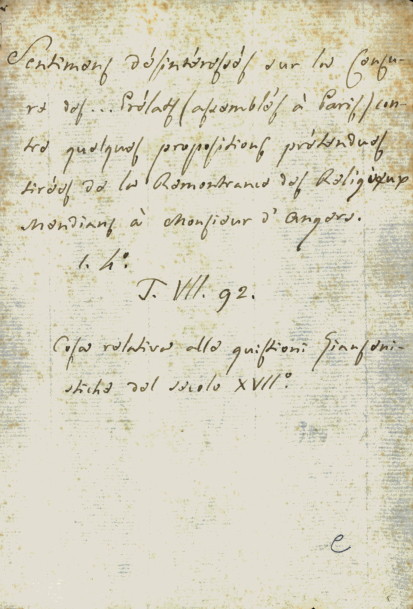 Sentimens désintéressés sur la Censu-
re des... Prélats (assemblés à Paris) con-
tre quelques propositions prétendues
tirées de la Remontrance des Religieux
Mendians à Monsieur d'Angers.
1. 4.°
T. VII. 92.
Cose relative alle quistioni Gianseni-
stiche del secolo XVII.°
e